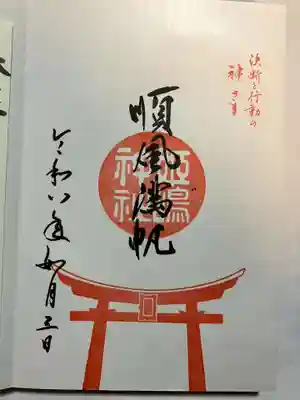 決断と行動の
神さま
順風満帆
姫嶋
神社
令和八年如月三日